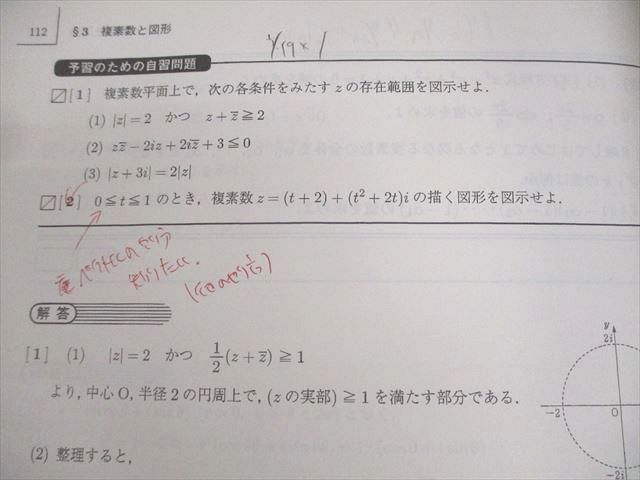 112 §3 複素数と図形
予習のための自習問題
[1] 複素数平面上で，次の各条件をみたす z の存在範囲を図示せよ．
(1) |z|=2 かつ z+z̅≧2
(2) zz̅−2iz+2iz̅+3≦0
(3) |z+3i|=2|z|
[2] 0≦t≦1 のとき，複素数 z=(t+2)+(t²+2t)i の描く図形を図示せよ．
解答
[1] (1) |z|=2 かつ 1/2(z+z̅)≧1
より，中心 O，半径 2 の円周上で，(z の実部)≧1 を満たす部分である．
(2) 整理すると，
y
2i
−2
O
−2i